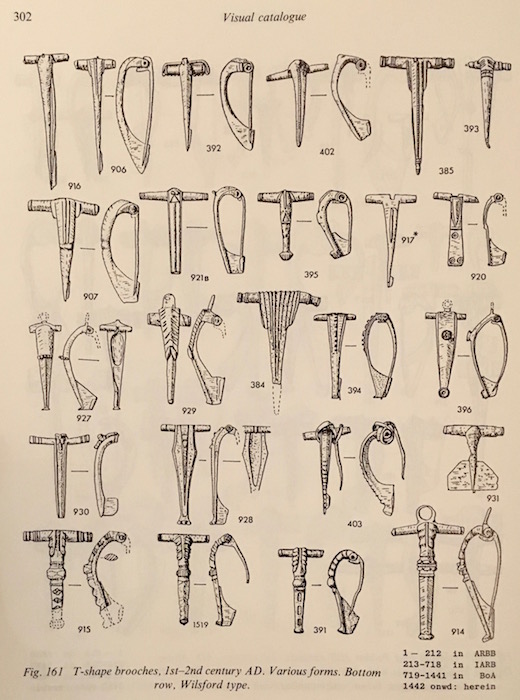 302
Visual catalogue
916
906
392
402
385
393
907
921B
395
917*
920
927
929
384
394
396
930
928
403
931
915
1519
391
914
Fig. 161 T-shape brooches, 1st–2nd century AD. Various forms. Bottom
row, Wilsford type.
1 – 212 in ARBB
213–718 in IARB
719–1441 in BoA
1442 onwd: herein